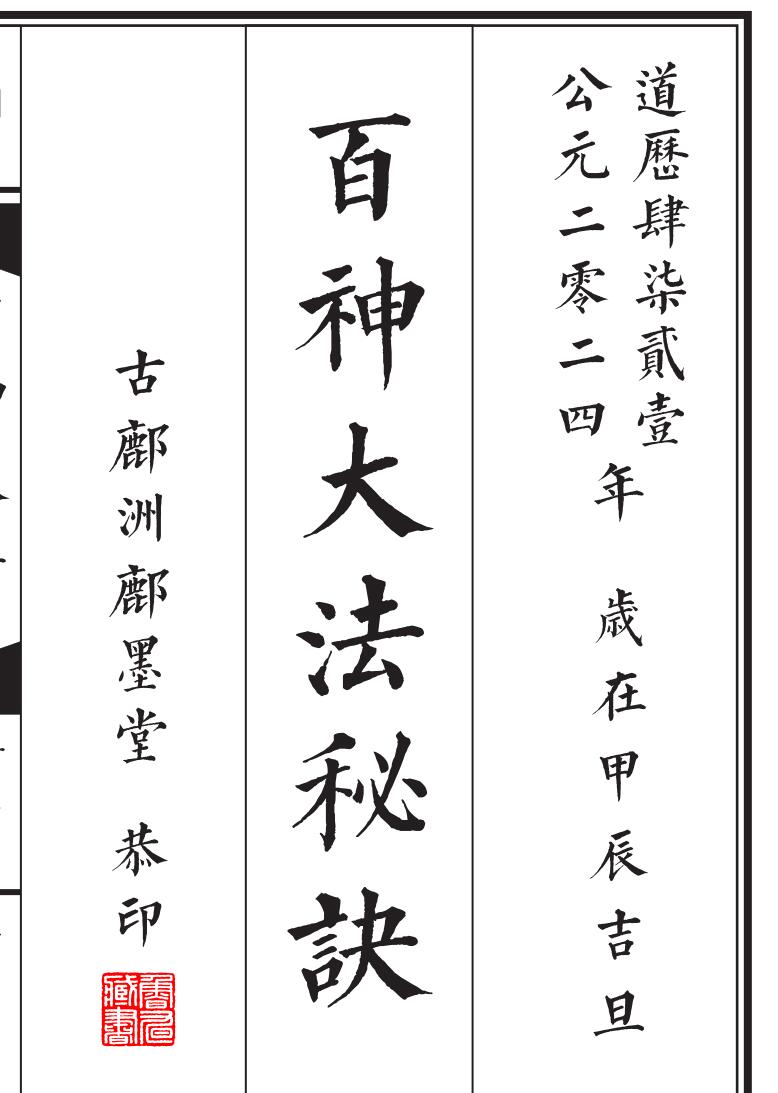 道歷肆柒貳壹
公元二零二四
年　歲在甲辰吉旦
百神大法秘訣
古鄜洲鄜墨堂　恭印
藏書